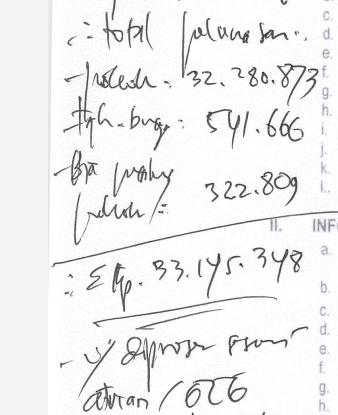 ∴ total pelunasan:
- pokok : 32.280.873
- Tgh. bunga : 541.666
- Bya pinalty
pelunasan : 322.809
∴ Σ Rp. 33.145.348
- u/ diproses sesuai
aturan / OTG
c.
d.
e.
f.
g.
h.
i.
j.
k.
l.
II. INF
a.
b.
c.
d.
e.
f.
g.
h.